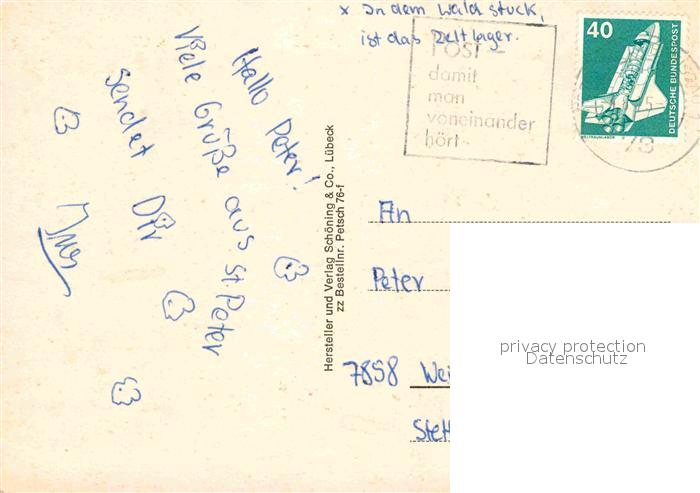 x In dem Wald stück,
ist das Zeltlager.
40
DEUTSCHE BUNDESPOST
WELTRAUMLABOR
Post -
damit
man
voneinander
hört
78
Hallo Peter!
Viele Grüße aus St. Peter
sendet Dir
Hersteller und Verlag Schöning & Co., Lübeck
zz Bestellnr. Petsch 76-f
An
Peter
7858 Wei
Stett
privacy protection
Datenschutz